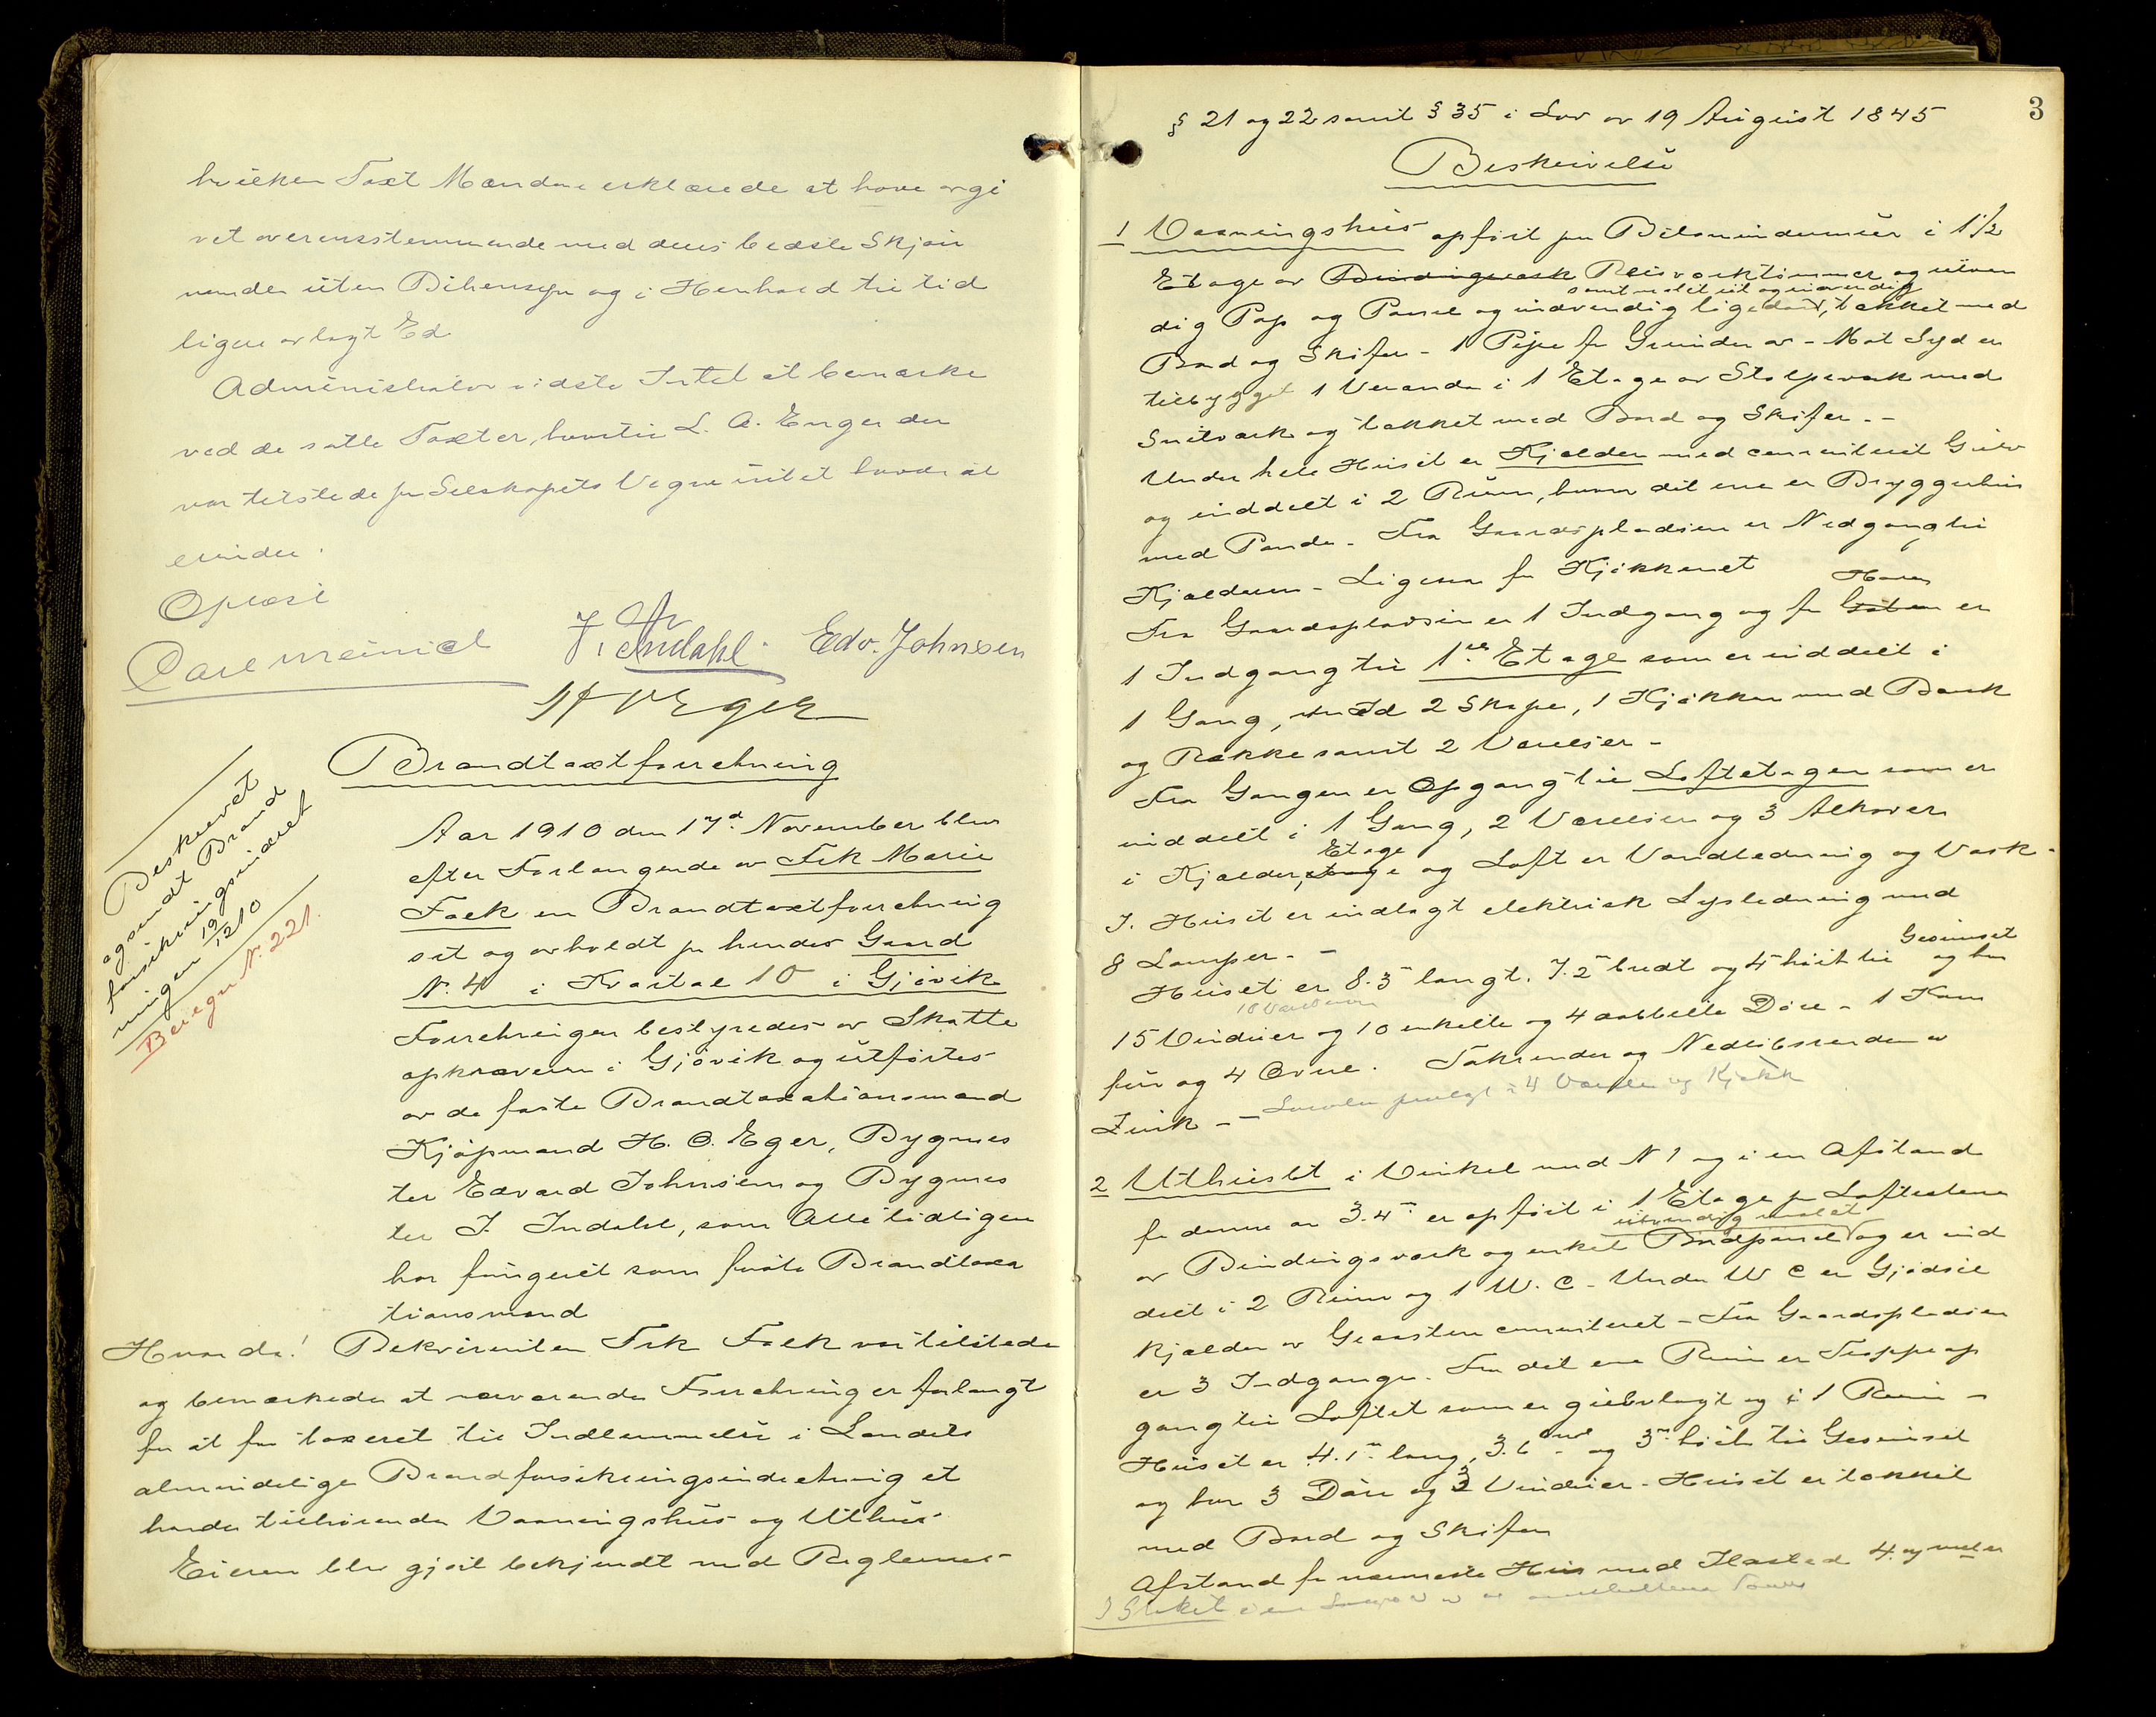 hvilken Taxt Mændene erklærede at have avgi
vet overensstemmende med deres bedste Skjøn
nende uten Bihensyn og i Henhold til tid
ligere avlagt Ed
Administrator vidste Intet at bemærke
ved de satte Taxter, hvortil L. A. Enger der
var tilstede for Selskapets Vegne intet havde at
erindre.
Oplæst
Carl Meinich J. Indahl. Edv. Johnsen
H O Eger
Brandtaxtforretning
Beskrevet
og sendt Brand
forsikringsindret
ningen 19/12 10
Beregn N. 221.
Aar 1910 den 17d. November blev
efter Forlangende av Frk Marie
Falk en Brandtaxtforretning
sat og avholdt paa hendes Gaard
N. 4 i Kvartal 10 i Gjøvik
Forretningen bestyredes av Skatte
opkræveren i Gjøvik og utførtes
av de faste Brandtaxationsmænd
Kjøpmand H. O. Eger, Bygmes
ter Edvard Johnsen og Bygmes
ter J. Indahl, som Alle tidligere
har fungeret som faste Brandtaxa
tionsmænd
Hvorda! Rekvirenten Frk Falk var tilstede
og bemærkede at nærværende Forretning er forlangt
for at faa taxeret til Indlemmelse i Landets
almindelige Brandforsikringsindretning et
hende tilhørende Vaaningshus og Uthus
Eieren blev gjort bekjendt med Reglernes
3
§ 21 og 22 samt § 35 i Lov av 19 August 1845
Beskrivelse
1 Vaaningshus opført paa Betonindermur i 1 1/2
Etage av Bindingsværk Reisværktømmer og utven
samt malet ut og indvendig
dig Pap og Panel og indvendig ligedan, tækket med
Bord og Skifer - 1 Pipe fra Grunden av - Mot Syd er
tilbygget 1 Veranda i 1 Etage av Stolpeværk med
Snitværk og tækket med Bord og Skifer. -
Under hele Huset er Kjælder med cementeret Gulv
og inddelt i 2 Rum, hvorav det ene er Bryggerhus
med Pande. Fra Gaardspladsen er Nedgang til
Kjælderen - Ligesaa fra Kjøkkenet
Haven
Fra Gaardspladsen er 1 Indgang og fra Gaten er
1 Indgang til 1ste Etage som er inddelt i
1 Gang, med 2 Skape, 1 Kjøkken med Bænk
og Række samt 2 Værelser -
Fra Gangen er Opgang til Loftetagen som er
inddelt i 1 Gang, 2 Værelser og 3 Alkover
Etage
i Kjælder, og Loft er Vandledning og Vask -
I Huset er indlagt elektrisk Lysledning med
8 Lamper. -
Gesimset
Huset er 8.3m langt, 7.2m bredt og 4m høit til og har
15 Vinduer og 10 enkelte og 4 dobbelte Døre - 1 Kom
fur og 4 Ovne. Takrender og Nedløbsrender av
Zink - - i 4 Værelser og Kjøkk
2 Uthuset i Vinkel med N 1 og i en Afstand
fra denne av 3.4m er opført i 1 Etage
utvendig malet
av Bindingsværk og enkel Bordpanel og er ind
delt i 2 Rum og 1 W. C. - Under W C er Gjødsel
kjælder av Graasten cementeret - Fra Gaardspladsen
er 3 Indgange. Fra det ene Rum er Trappeop
gang til Loftet som er gulvlagt og i 1 Rum -
Huset er 4.1m lang, 3.6 og 3m høit til Gesimset
og har 3 Døre og 3 Vinduer - Huset er tækket
med Bord og Skifer
Afstand fra nærmeste Hus med Ildsted 4. meter